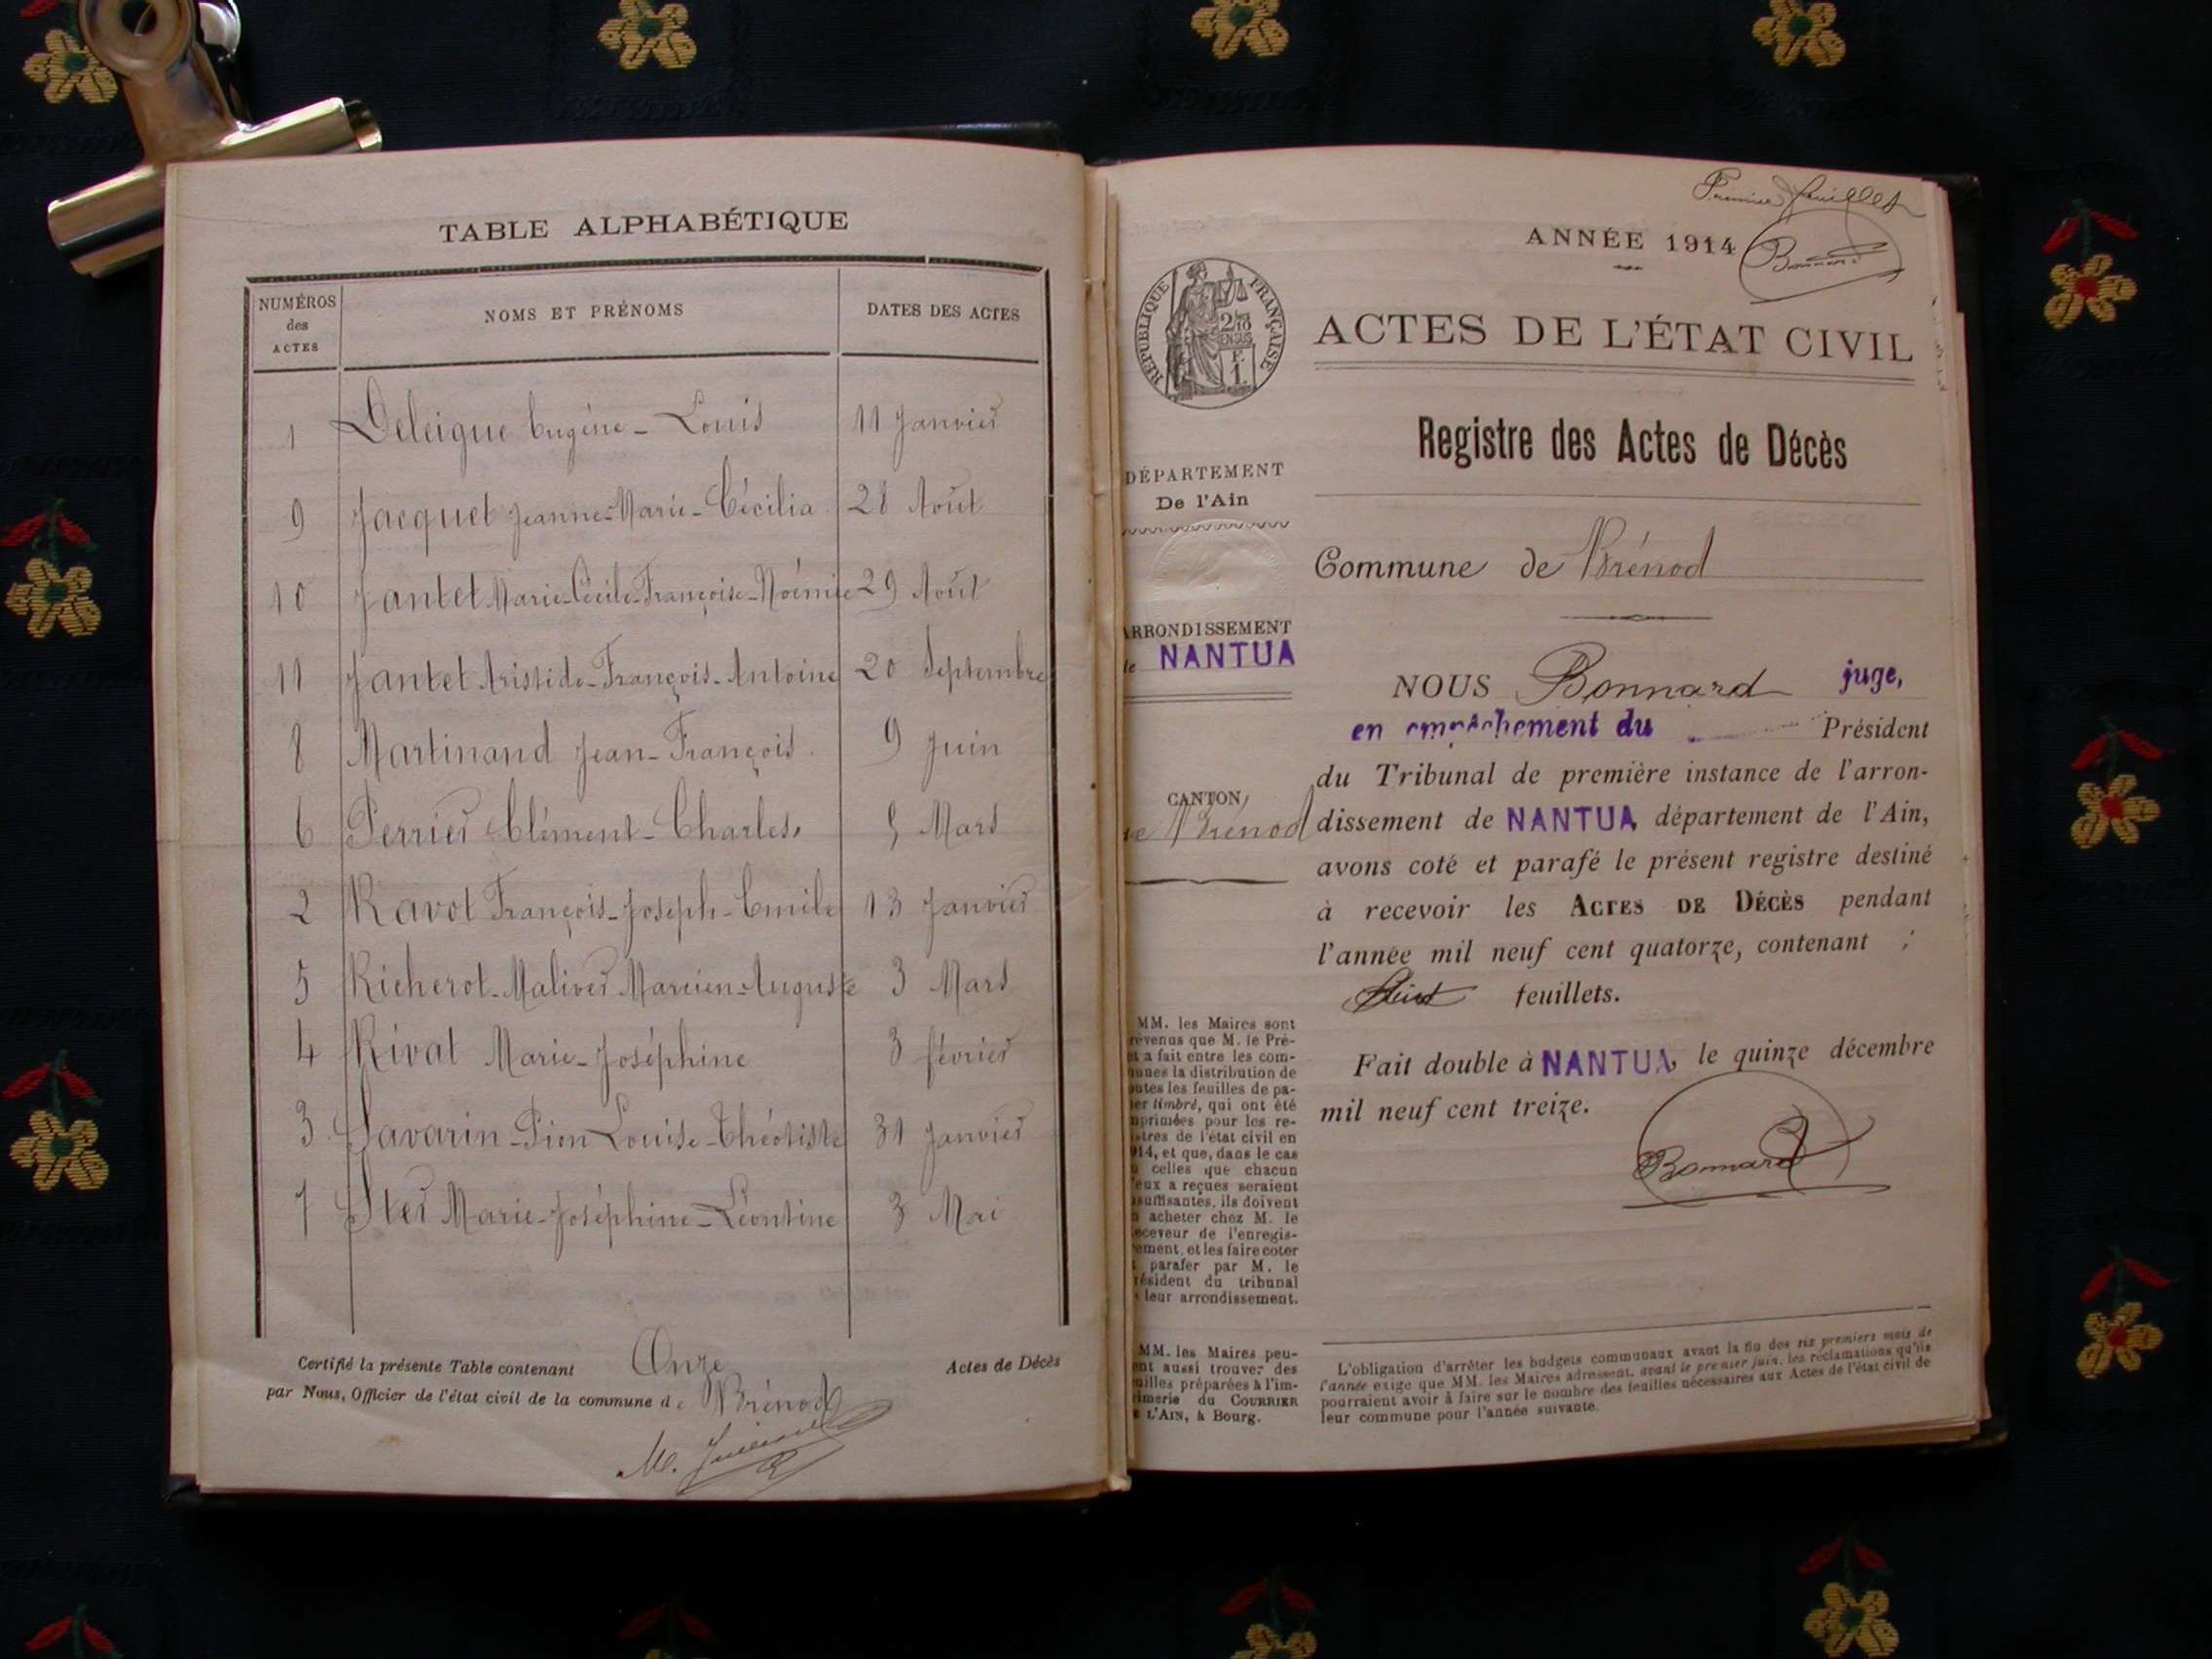 TABLE ALPHABÉTIQUE
NUMÉROS des ACTES NOMS ET PRÉNOMS DATES DES ACTES
1 Deleigue Eugène-Louis 11 Janvier
9 Jacquet Jeanne-Marie-Cécilia 28 Août
10 Jantet Marie-Cécile-Françoise-Noémie 29 Août
11 Jantet Aristide-François-Antoine 20 Septembre
8 Martinand Jean-François 9 Juin
6 Perrier Clément-Charles 5 Mars
2 Ravot François-Joseph-Emile 13 Janvier
5 Richerot-Malivers Marcien-Auguste 3 Mars
4 Rivat Marie-Joséphine 3 février
3 Savarin-Pion Louise-Théotiste 31 Janvier
7 Ster Marie-Joséphine-Léontine 3 Mai
Certifié la présente Table contenant Onze Actes de Décès
par Nous, Officier de l'état civil de la commune de Brénod
M.
Premier feuillet
Bonnard
ANNÉE 1914
RÉPUBLIQUE FRANÇAISE
2/10
EN SUS
F.
1.
ACTES DE L'ÉTAT CIVIL
Registre des Actes de Décès
DÉPARTEMENT
De l'Ain
Commune de Brénod
ARRONDISSEMENT
de NANTUA
CANTON
de Brénod
NOUS Bonnard juge,
en empêchement du Président
du Tribunal de première instance de l'arron-
dissement de NANTUA département de l'Ain,
avons coté et parafé le présent registre destiné
à recevoir les ACTES DE DÉCÈS pendant
l'année mil neuf cent quatorze, contenant
feuillets.
Fait double à NANTUA, le quinze décembre
mil neuf cent treize.
Bonnard
MM. les Maires sont
prévenus que M. le Pré-
fet a fait entre les com-
munes la distribution de
toutes les feuilles de pa-
pier timbré, qui ont été
imprimées pour les re-
gistres de l'état civil en
1914, et que, dans le cas
où celles que chacun
d'eux a reçues seraient
insuffisantes, ils doivent
en acheter chez M. le
Receveur de l'enregis-
trement, et les faire coter
et parafer par M. le
Président du tribunal
de leur arrondissement.
MM. les Maires peu-
vent aussi trouver des
feuilles préparées à l'im-
primerie du COURRIER
DE L'AIN, à Bourg.
L'obligation d'arrêter les budgets communaux avant la fin des six premiers mois de
l'année exige que MM. les Maires adressent, avant le premier juin, les réclamations qu'ils
pourraient avoir à faire sur le nombre des feuilles nécessaires aux Actes de l'état civil de
leur commune pour l'année suivante.